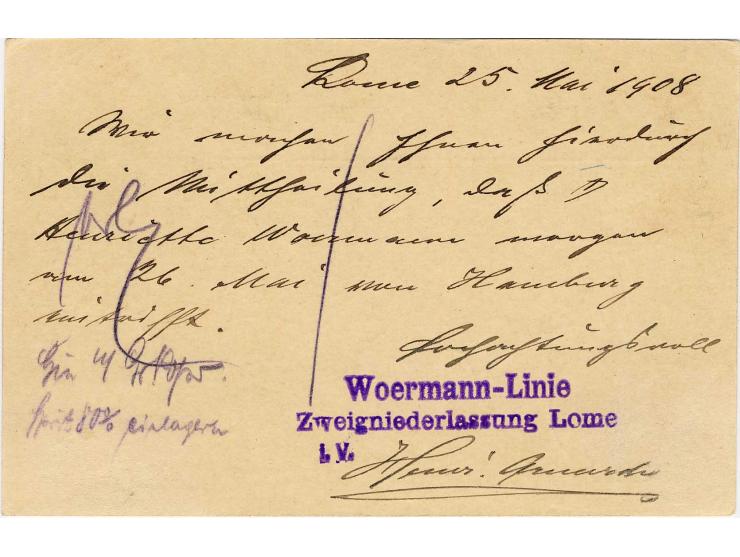 Lome 25. Mai 1908
Wir machen Ihnen hierdurch
die Mittheilung, daß D
Henriette Woermann morgen
am 26. Mai von Hamburg
eintrifft.
Hochachtungsvoll
Woermann-Linie
Zweigniederlassung Lome
i. V.
Henri.
Gin
Sprit 80% einlagern